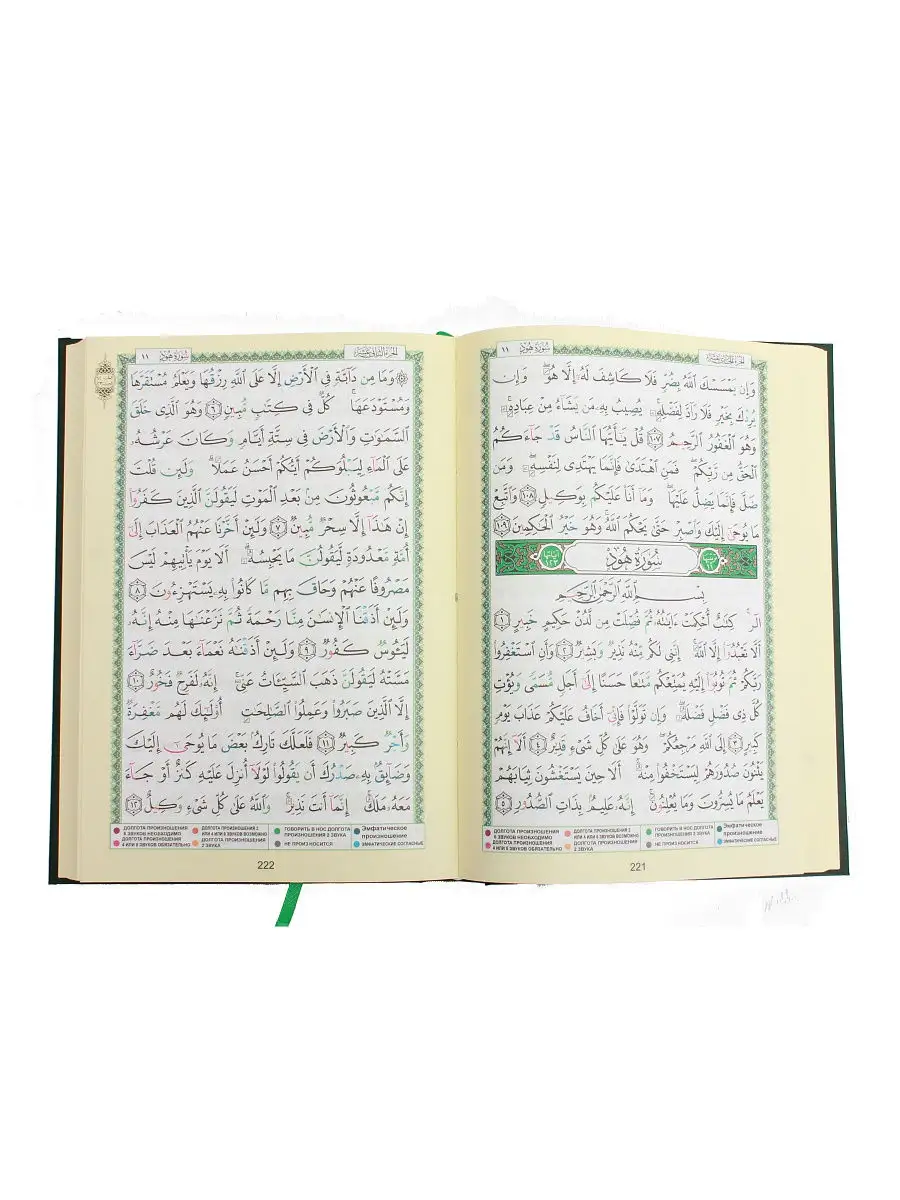 الجزء الحادي عشر سُورَةُ هُود ١١
وَإِن يَمْسَسْكَ ٱللَّهُ بِضُرٍّ فَلَا كَاشِفَ لَهُۥٓ إِلَّا هُوَ ۖ وَإِن
يُرِدْكَ بِخَيْرٍ فَلَا رَآدَّ لِفَضْلِهِۦ ۚ يُصِيبُ بِهِۦ مَن يَشَآءُ مِنْ عِبَادِهِۦ ۚ
وَهُوَ ٱلْغَفُورُ ٱلرَّحِيمُ ١٠٧ قُلْ يَـٰٓأَيُّهَا ٱلنَّاسُ قَدْ جَآءَكُمُ
ٱلْحَقُّ مِن رَّبِّكُمْ ۖ فَمَنِ ٱهْتَدَىٰ فَإِنَّمَا يَهْتَدِى لِنَفْسِهِۦ ۖ وَمَن
ضَلَّ فَإِنَّمَا يَضِلُّ عَلَيْهَا ۖ وَمَآ أَنَا۠ عَلَيْكُم بِوَكِيلٍ ١٠٨ وَٱتَّبِعْ
مَا يُوحَىٰٓ إِلَيْكَ وَٱصْبِرْ حَتَّىٰ يَحْكُمَ ٱللَّهُ ۚ وَهُوَ خَيْرُ ٱلْحَـٰكِمِينَ ١٠٩
سُورَةُ هُود
بِسْمِ ٱللَّهِ ٱلرَّحْمَـٰنِ ٱلرَّحِيمِ
الٓر ۚ كِتَـٰبٌ أُحْكِمَتْ ءَايَـٰتُهُۥ ثُمَّ فُصِّلَتْ مِن لَّدُنْ حَكِيمٍ خَبِيرٍ ١
أَلَّا تَعْبُدُوٓا۟ إِلَّا ٱللَّهَ ۚ إِنَّنِى لَكُم مِّنْهُ نَذِيرٌ وَبَشِيرٌ ٢ وَأَنِ ٱسْتَغْفِرُوا۟
رَبَّكُمْ ثُمَّ تُوبُوٓا۟ إِلَيْهِ يُمَتِّعْكُم مَّتَـٰعًا حَسَنًا إِلَىٰٓ أَجَلٍ مُّسَمًّى وَيُؤْتِ
كُلَّ ذِى فَضْلٍ فَضْلَهُۥ ۖ وَإِن تَوَلَّوْا۟ فَإِنِّىٓ أَخَافُ عَلَيْكُمْ عَذَابَ يَوْمٍ
كَبِيرٍ ٣ إِلَى ٱللَّهِ مَرْجِعُكُمْ ۖ وَهُوَ عَلَىٰ كُلِّ شَىْءٍ قَدِيرٌ ٤ أَلَآ إِنَّهُمْ
يَثْنُونَ صُدُورَهُمْ لِيَسْتَخْفُوا۟ مِنْهُ ۚ أَلَا حِينَ يَسْتَغْشُونَ ثِيَابَهُمْ
يَعْلَمُ مَا يُسِرُّونَ وَمَا يُعْلِنُونَ ۚ إِنَّهُۥ عَلِيمٌۢ بِذَاتِ ٱلصُّدُورِ ٥
ДОЛГОТА ПРОИЗНОШЕНИЯ 6 ЗВУКОВ НЕОБХОДИМО ДОЛГОТА ПРОИЗНОШЕНИЯ 2 ИЛИ 4 ИЛИ 6 ЗВУКОВ ВОЗМОЖНО ГОВОРИТЬ В НОС ДОЛГОТА ПРОИЗНОШЕНИЯ 2 ЗВУКА Эмфатическое произношение
ДОЛГОТА ПРОИЗНОШЕНИЯ 4 ИЛИ 5 ЗВУКОВ ОБЯЗАТЕЛЬНО ДОЛГОТА ПРОИЗНОШЕНИЯ 2 ЗВУКА НЕ ПРОИЗНОСИТСЯ ЭМФАТИЧЕСКИЕ СОГЛАСНЫЕ
221
الجزء الثاني عشر سُورَةُ هُود ١١
۞ وَمَا مِن دَآبَّةٍ فِى ٱلْأَرْضِ إِلَّا عَلَى ٱللَّهِ رِزْقُهَا وَيَعْلَمُ مُسْتَقَرَّهَا
وَمُسْتَوْدَعَهَا ۚ كُلٌّ فِى كِتَـٰبٍ مُّبِينٍ ٦ وَهُوَ ٱلَّذِى خَلَقَ
ٱلسَّمَـٰوَٰتِ وَٱلْأَرْضَ فِى سِتَّةِ أَيَّامٍ وَكَانَ عَرْشُهُۥ
عَلَى ٱلْمَآءِ لِيَبْلُوَكُمْ أَيُّكُمْ أَحْسَنُ عَمَلًا ۗ وَلَئِن قُلْتَ
إِنَّكُم مَّبْعُوثُونَ مِنۢ بَعْدِ ٱلْمَوْتِ لَيَقُولَنَّ ٱلَّذِينَ كَفَرُوٓا۟
إِنْ هَـٰذَآ إِلَّا سِحْرٌ مُّبِينٌ ٧ وَلَئِنْ أَخَّرْنَا عَنْهُمُ ٱلْعَذَابَ إِلَىٰٓ
أُمَّةٍ مَّعْدُودَةٍ لَّيَقُولُنَّ مَا يَحْبِسُهُۥٓ ۗ أَلَا يَوْمَ يَأْتِيهِمْ لَيْسَ
مَصْرُوفًا عَنْهُمْ وَحَاقَ بِهِم مَّا كَانُوا۟ بِهِۦ يَسْتَهْزِءُونَ ٨
وَلَئِنْ أَذَقْنَا ٱلْإِنسَـٰنَ مِنَّا رَحْمَةً ثُمَّ نَزَعْنَـٰهَا مِنْهُ إِنَّهُۥ
لَيَـُٔوسٌ كَفُورٌ ٩ وَلَئِنْ أَذَقْنَـٰهُ نَعْمَآءَ بَعْدَ ضَرَّآءَ
مَسَّتْهُ لَيَقُولَنَّ ذَهَبَ ٱلسَّيِّـَٔاتُ عَنِّىٓ ۚ إِنَّهُۥ لَفَرِحٌ فَخُورٌ ١٠
إِلَّا ٱلَّذِينَ صَبَرُوا۟ وَعَمِلُوا۟ ٱلصَّـٰلِحَـٰتِ أُو۟لَـٰٓئِكَ لَهُم مَّغْفِرَةٌ
وَأَجْرٌ كَبِيرٌ ١١ فَلَعَلَّكَ تَارِكٌۢ بَعْضَ مَا يُوحَىٰٓ إِلَيْكَ
وَضَآئِقٌۢ بِهِۦ صَدْرُكَ أَن يَقُولُوا۟ لَوْلَآ أُنزِلَ عَلَيْهِ كَنزٌ أَوْ جَآءَ
مَعَهُۥ مَلَكٌ ۚ إِنَّمَآ أَنتَ نَذِيرٌ ۚ وَٱللَّهُ عَلَىٰ كُلِّ شَىْءٍ وَكِيلٌ ١٢
ДОЛГОТА ПРОИЗНОШЕНИЯ 6 ЗВУКОВ НЕОБХОДИМО ДОЛГОТА ПРОИЗНОШЕНИЯ 2 ИЛИ 4 ИЛИ 6 ЗВУКОВ ВОЗМОЖНО ГОВОРИТЬ В НОС ДОЛГОТА ПРОИЗНОШЕНИЯ 2 ЗВУКА Эмфатическое произношение
ДОЛГОТА ПРОИЗНОШЕНИЯ 4 ИЛИ 5 ЗВУКОВ ОБЯЗАТЕЛЬНО ДОЛГОТА ПРОИЗНОШЕНИЯ 2 ЗВУКА НЕ ПРОИЗНОСИТСЯ ЭМФАТИЧЕСКИЕ СОГЛАСНЫЕ
222